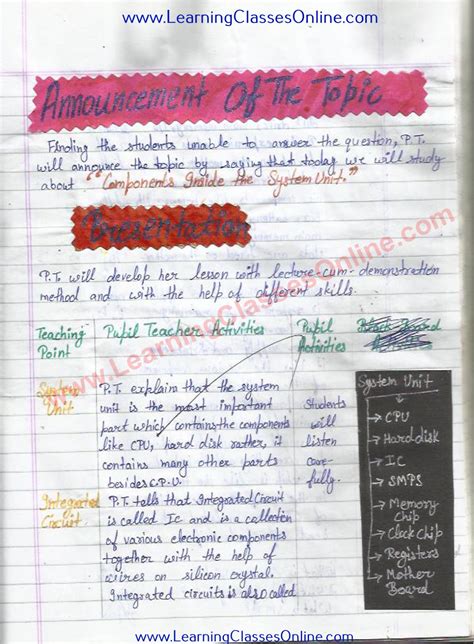 www.LearningClassesOnline.com
Announcement Of The Topic
Finding the students unable to answer the question, P.T.
will announce the topic by saying that today we will study
about "Components Inside the System Unit."
Presentation
P.T. will develop her lesson with lecture-cum-demonstration
method and with the help of different skills.
www.LearningClassesOnline.com
Teaching Point
Pupil Teacher Activities
Pupil Activities
Black Board
System Unit
P.T. explain that the system
unit is the most important
part which contains the components
like CPU, hard disk rather, it
contains many other parts
besides C.P.U.
Students
will
listen
care-
fully.
System Unit
→ CPU
→ Hard disk
→ IC
→ SMPS
→ Memory
Chip
→ Clock Chip
→ Registers
→ Mother
Board
Integrated
Circuit
P.T. tells that Integrated Circuit
is called Ic and is a collection
of various electronic components
together with the help of
wires on silicon crystal.
Integrated circuits is also called
www.LearningClassesOnline.com